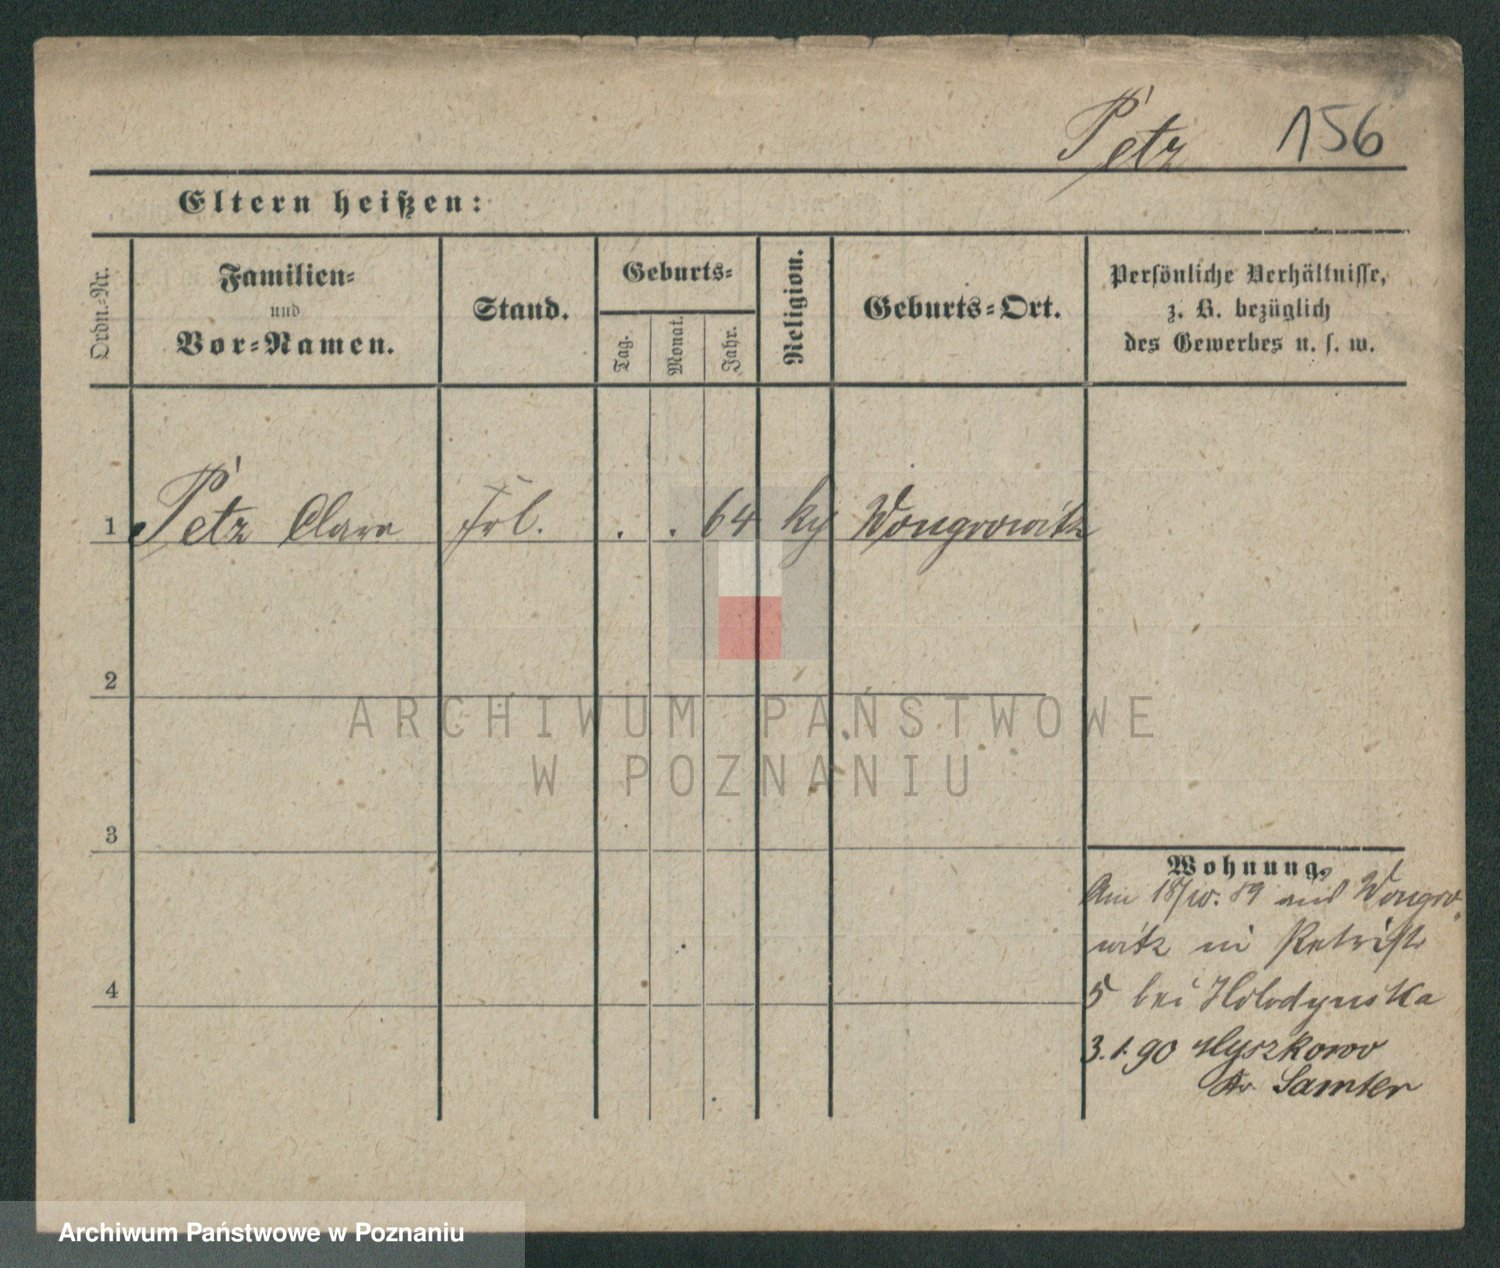 Petz 156
Eltern heißen:
Ordn.-Nr.
Familien-
und
Vor-Namen.
Stand.
Geburts-
Tag.
Monat.
Jahr.
Religion.
Geburts-Ort.
Persönliche Verhältnisse,
z. B. bezüglich
des Gewerbes u. s. w.
1 Petz Clara Frl. . . 64 Wongrowitz
2
ARCHIWUM PAŃSTWOWE
W POZNANIU
3
4
Wohnung.
Am 18/10. 89 aus Wongro-
witz in
5 bei Holodynska
3.1.90
Kr. Samter
Archiwum Państwowe w Poznaniu